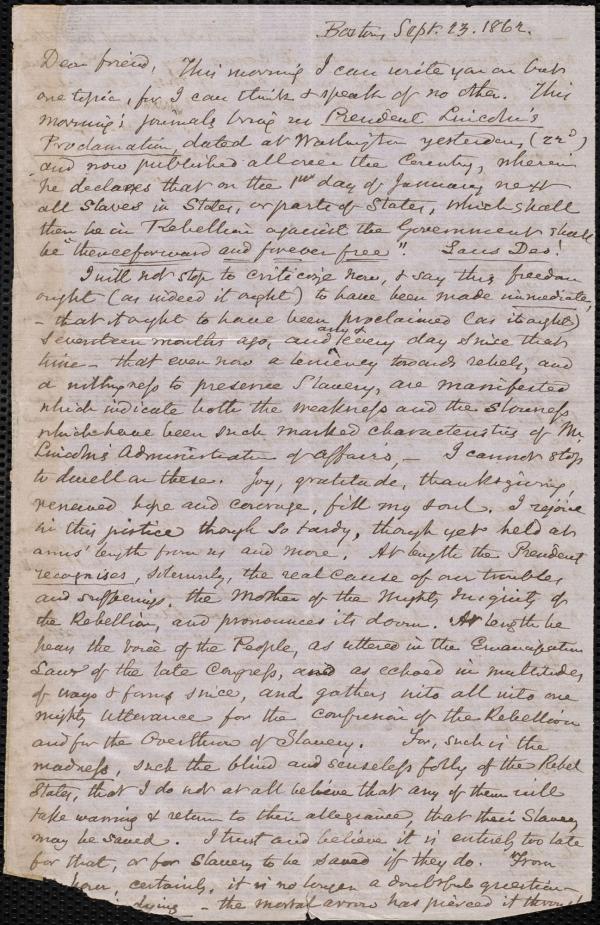 Boston, Sept. 23. 1862.
Dear friend, This morning I can write you on but
one topic, for I can think & speak of no other. This
morning's journals bring us President Lincoln's
Proclamation, dated at Washington yesterday, (22d)
and now published all over the Country, wherein
he declares that on the 1st day of January next
all Slaves in States, or parts of States, which shall
then be in Rebellion against the Government shall
be "thenceforward and forever free". Laus Deo!
I will not stop to criticize now, & say this freedom
ought (as indeed it ought) to have been made immediate,
- that it ought to have been proclaimed (as it ought)
seventeen months ago, and any & every day since that
time - that even now a leniency towards rebels, and
a willingness to preserve Slavery, are manifested
which indicate both the weakness and the slowness
which have been such marked characteristics of Mr.
Lincoln's Administration of affairs, - I cannot stop
to dwell on these. Joy, gratitude, thanksgiving
renewed hope and courage, fill my soul. I rejoice
in this justice though so tardy, though yet held at
arms' length from us and more. At length the President
recognises, solemnly, the real cause of our troubles
and sufferings, the Mother of the Mighty Iniquity of
the Rebellion, and pronounces its doom. At length he
hears the voice of the People, as uttered in the Emancipation
Laws of the late Congress, and as echoed in multitudes
of ways & forms since, and gathers into all into one
mighty utterance for the confusion of the Rebellion
and for the Overthrow of Slavery. For, such is the
madness, such the blind and senseless folly of the Rebel
States, that I do not at all believe that any of them will
take warning & return to their allegiance, that their Slavery
may be saved. I trust and believe it is entirely too late
for that, or for Slavery to be saved if they do. From
hour, certainly, it is no longer a doubtful question
dying - the mortal arrow has pierced it through